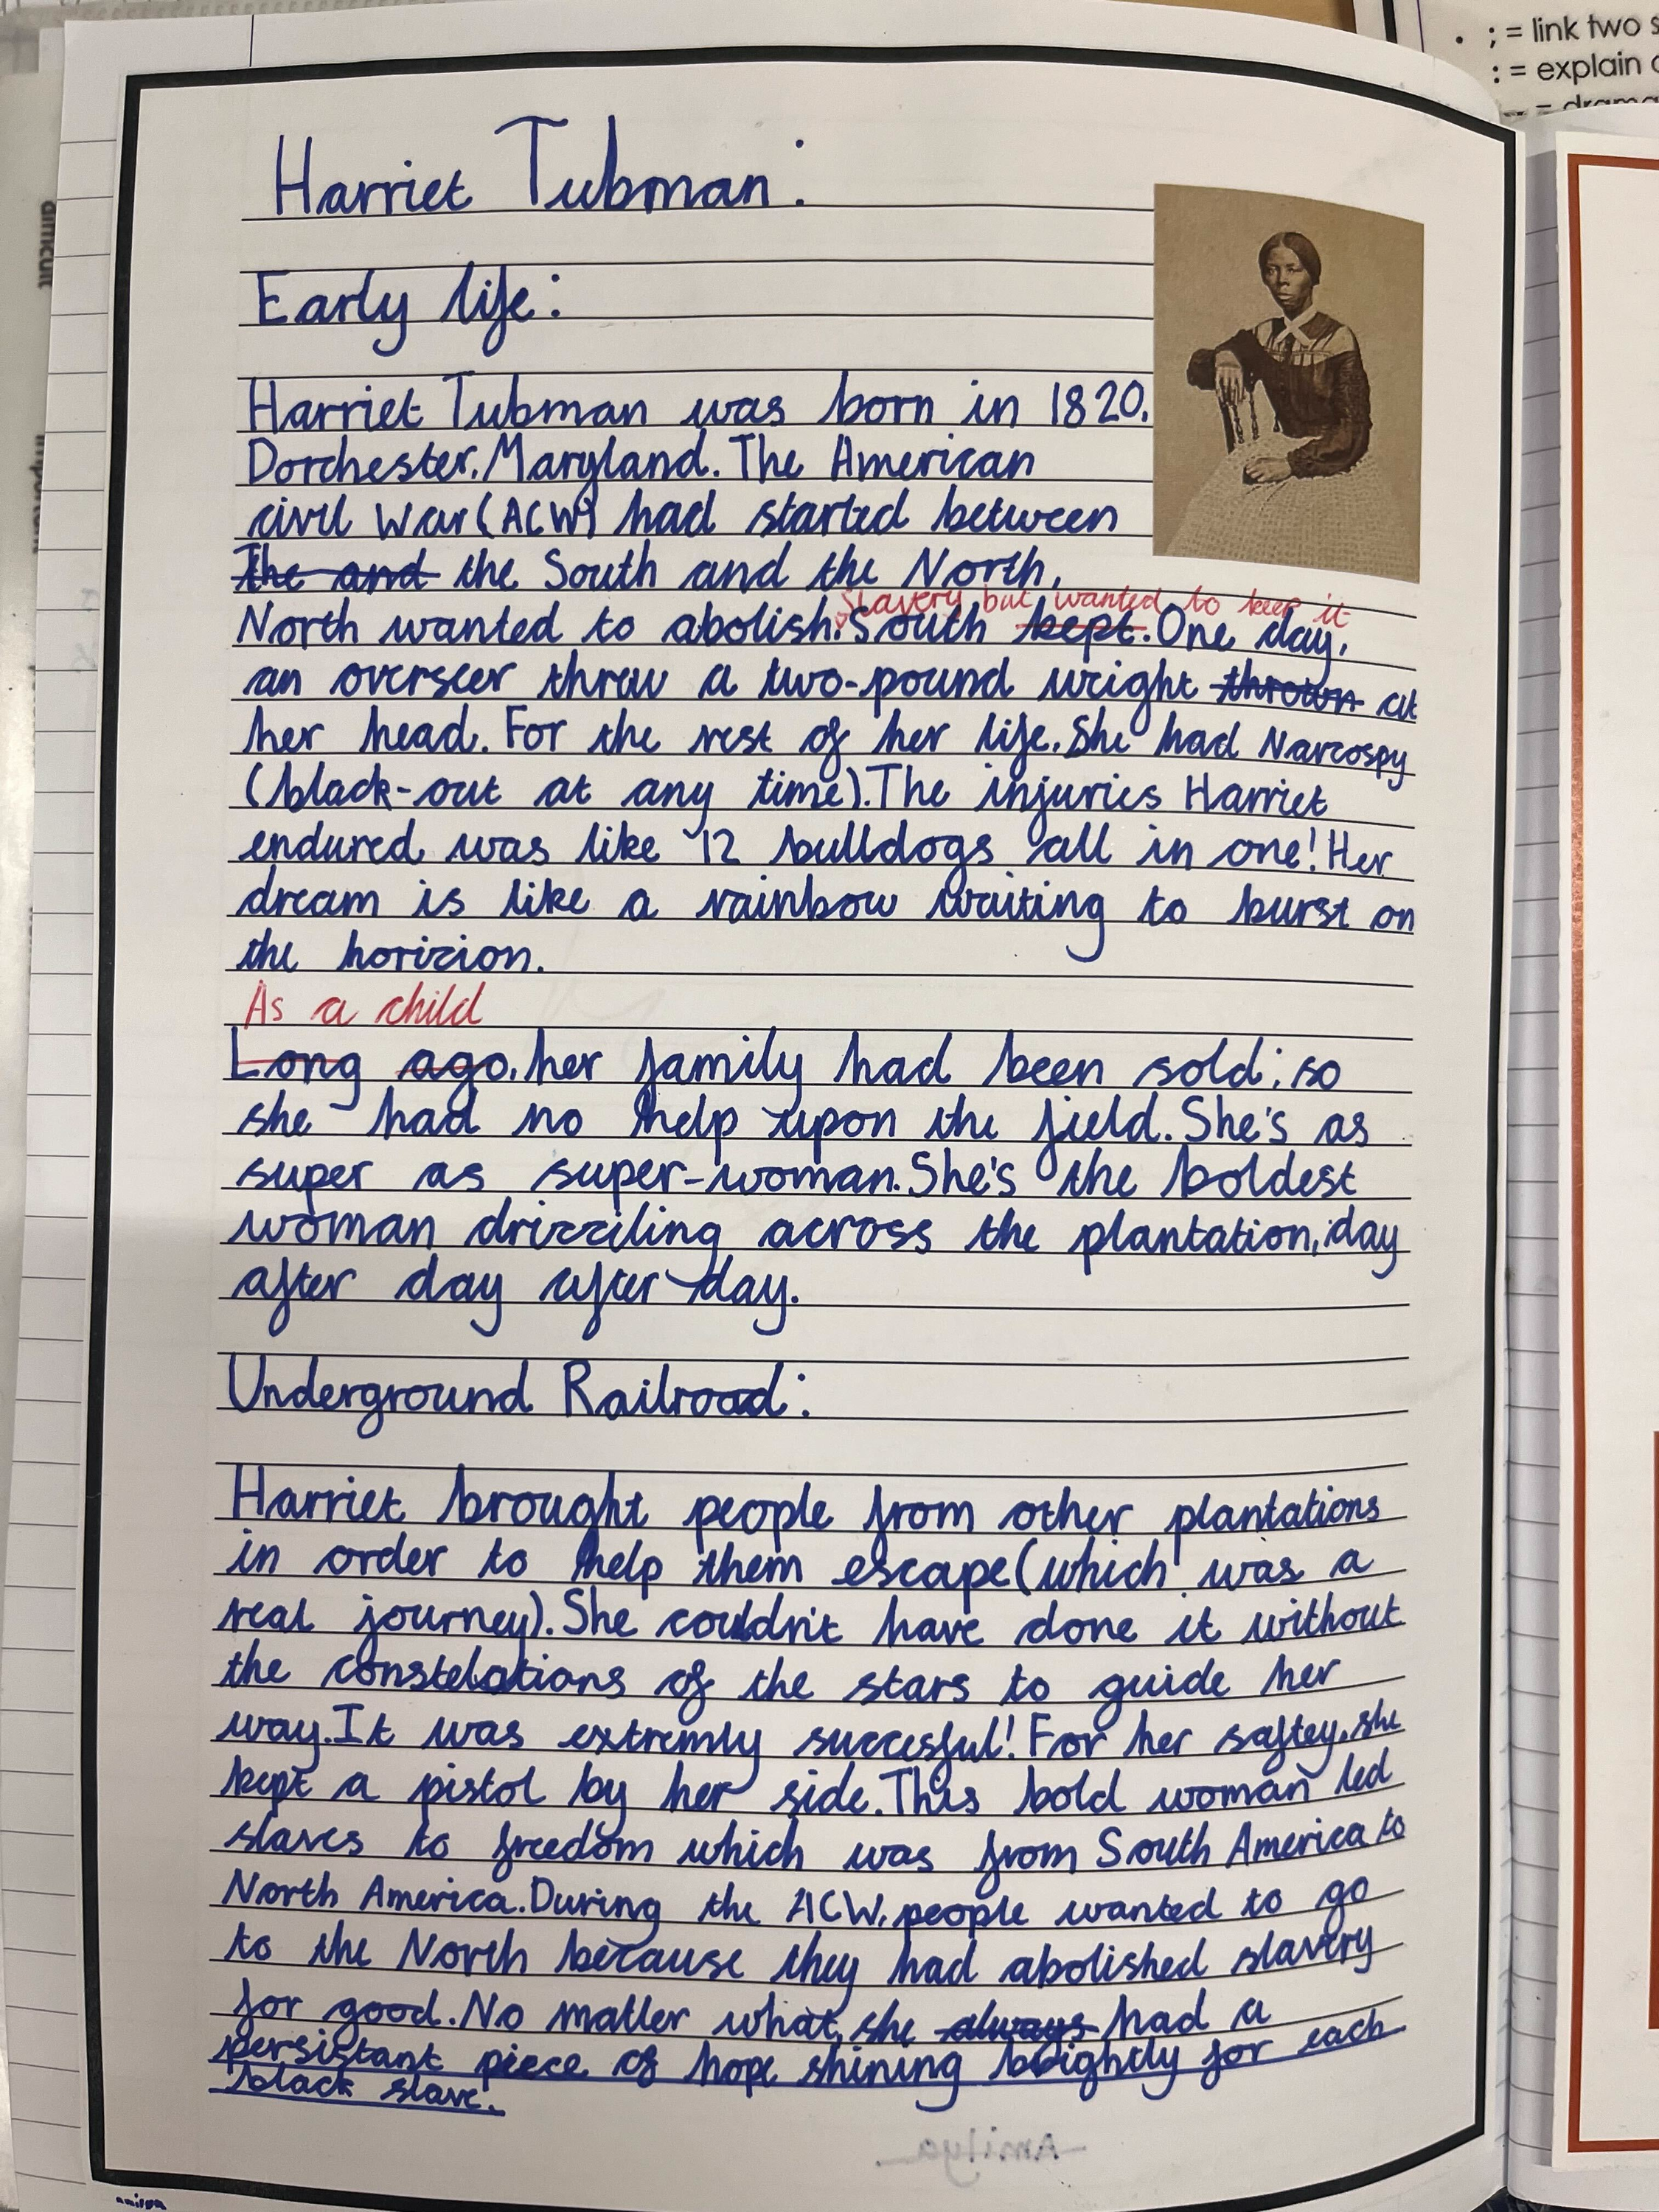 ; = link two s
: = explain
Harriet Tubman:
Early life:
Harriet Tubman was born in 1820,
Dorchester, Maryland. The American
civil War (ACW) had started between
The and the South and the North,
slavery but wanted to keep it
North wanted to abolish. South kept. One day,
an overseer threw a two-pound weight thrown at
her head. For the rest of her life, She had Narcospy
(black-out at any time). The injuries Harriet
endured was like 12 bulldogs all in one! Her
dream is like a rainbow waiting to burst on
the horizion.
As a child
Long ago, her family had been sold; so
she had no help upon the field. She's as
super as super-woman. She's the boldest
woman drizziling across the plantation, day
after day after day.
Underground Railroad:
Harriet brought people from other plantations
in order to help them escape (which was a
real journey). She couldn't have done it without
the constelations of the stars to guide her
way. It was extremly succesful! For her saftey, she
kept a pistol by her side. This bold woman led
slaves to freedom which was from South America to
North America. During the ACW, people wanted to go
to the North because they had abolished slavery
for good. No matter what, she always had a
persistant piece of hope shining brightly for each
black slave.
-Amilya
difficult